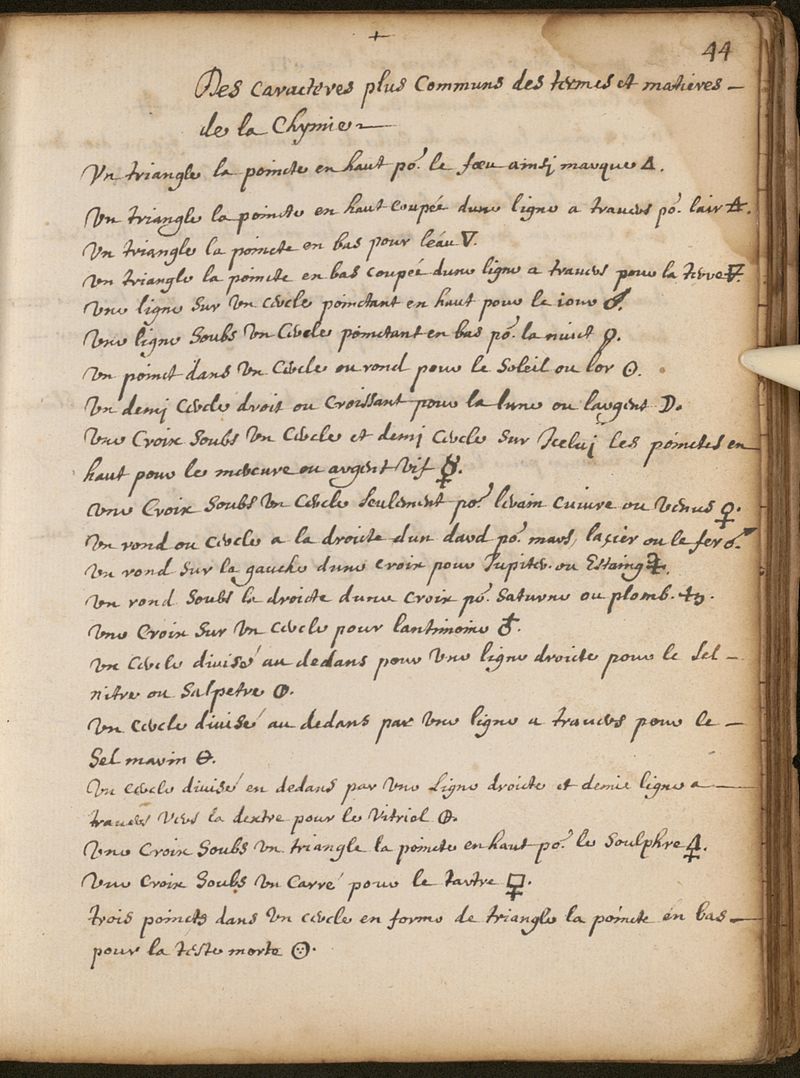 44
Des Caracteres plus Communs des termes et matieres
de la Chymie
Vn triangle la poincte en haut por. le foeu ainsj marque 🜂.
Vn triangle la poincte en haut coupée dune ligne a travers por. lair 🜁.
Vn triangle la poincte en bas pour léau 🜄.
Vn triangle la poincte en bas coupée dune ligne a travers pour la terre 🜃.
Vne ligne Sur Vn cercle poinctant en haut pour le iour ♂.
Vne ligne Soubs Vn Cercle poinctant en bas por. la nuict ϙ.
Vn poinct dans Vn Cercle ou rond pour le Soleil ou lor ☉.
Vn demj Cercle droit ou Croissant pour la lune ou largent D.
Vne Croix Soubs Vn Cercle et demj Cercle Sur Jceluj Les poinctes en
haut pour le mercure ou argent Vif ☿.
Vne Croix Soubs Vn Cercle Seulement por. lerain Cuivre ou Venus ♀.
Vn rond ou Cercle a la droicte dun dard por. mars, lacier ou le fer ♂.
Vn rond Sur la gauche dune croix pour Jupiter. ou Estaing ♃.
Vn rond Soubs la droicte dune Croix por. Saturne ou plomb. ♄.
Vne Croix Sur Vn Cercle pour lantimoine ♁.
Vn Cercle divisé au dedans pour Vne ligne droicte pour le Sel
nitre ou Salpetre ⦶.
Vn Cercle divisé au dedans par Vne ligne a travers pour le
Sel marin ⊖.
Vn Cercle divisé en dedans par Vne Ligne droicte et demie ligne a
travers Vers la dextre pour le Vitriol 🜖.
Vne Croix Soubs Vn triangle la poincte en haut por. le Soulphre 🜍.
Vne Croix Soubs Vn Carré pour le tartre 🜿.
trois poincts dans Vn cercle en forme de triangle la poincte en bas
pour la teste morte 🝎.